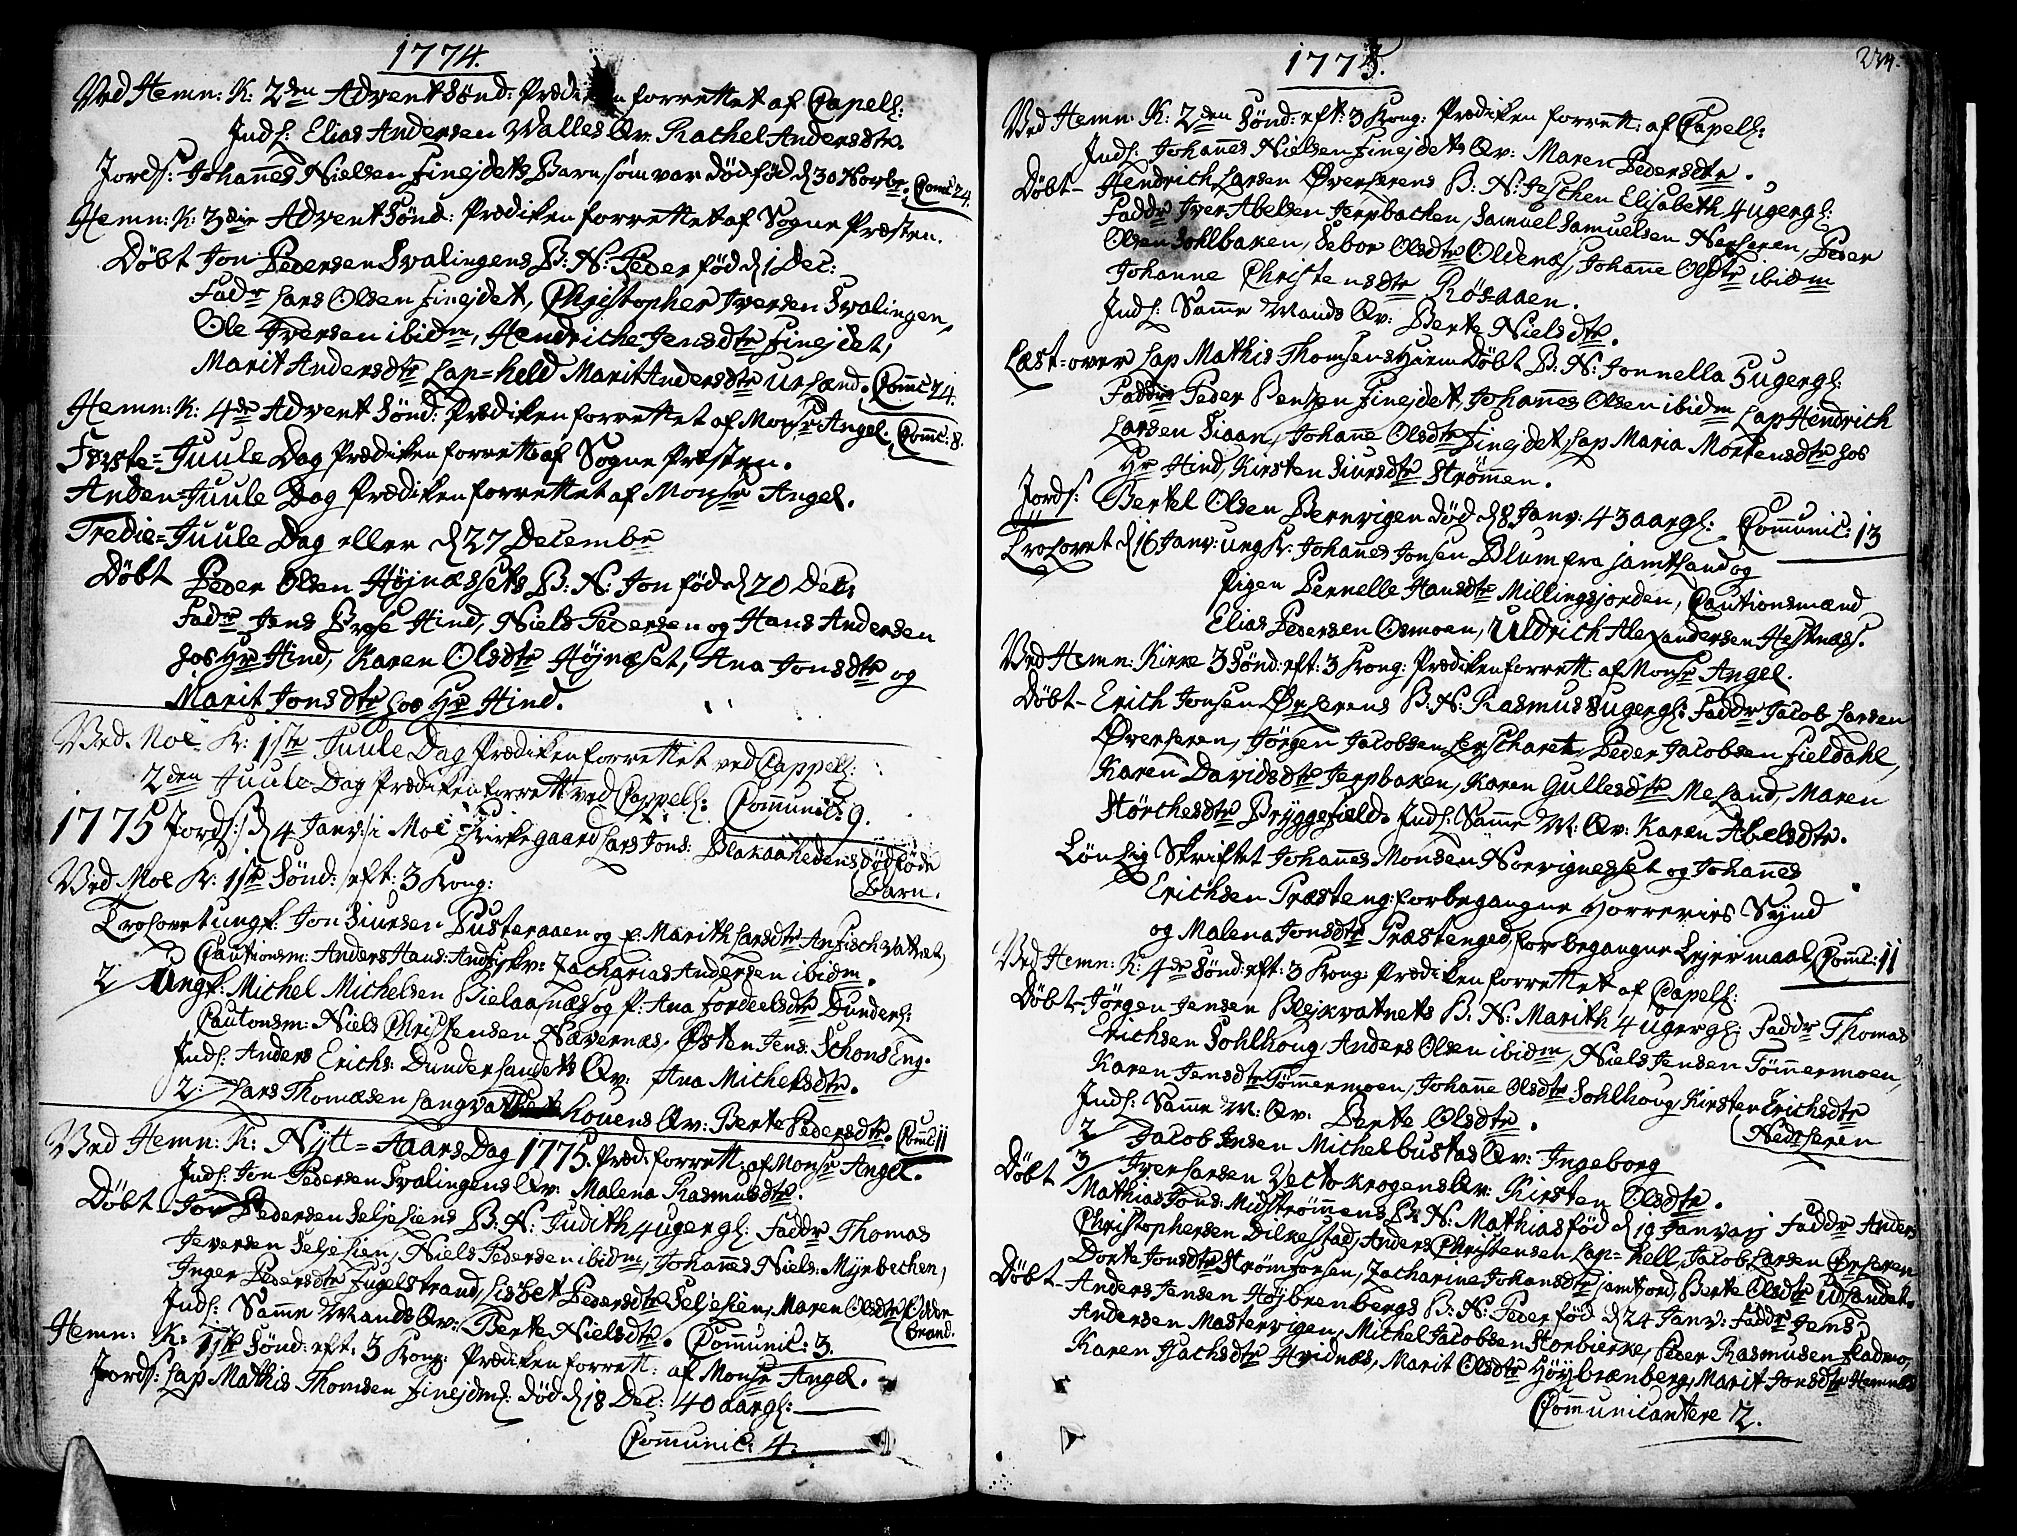 1774.
Ved Hemn: K: 2den Advent Sönd: Prædiken forrettet af Capell:
Indl: Elias Andersen Valles Qv: Rachel Andersdtr.
Jords: Johannes Nielsen Finejdets Barn, som var dødfød d 30 Novbr. Com̄: 24.
Hemn: K: 3die Advent Sönd: Prædiken forrettet af Sogne Præsten.
Döbt Jon Pedersen Svalingens B: N: Peder fød d 1 Dec:
Fadr Lars Olsen Finejdet, Christopher Iversen Svalingen,
Ole Iversen ibidm, Hendriche Jensdtr Finejdet,
Marit Andersdtr Lap=held Marit Andersdtr Urland. Com̄: 24.
Hemn: K: 4de Advent Sönd: Prædiken forrettet af Monsr Angel, Com̄: 8.
Første=Juule Dag Prædiken forrett: af Sogne Præsten.
Anden=Juule Dag Prædiken forrettet af Monsr Angel.
Tredie=Juule Dag eller d 27 Decembr
Döbt Peder Olsen Højnæssets B: N: Jon fød d 20 Dec:
Fadr Jens Hind, Niels Pedersen og Hans Andersen
hos Hr Hind, Karen Olsdtr Højnæset, Ana Jonsdtr og
Marit Jonsdtr hos Hr Hind.
Ved Moe K: 1ste Juule Dag Prædiken forrettet ved Cappell:
2den Juule Dag Prædiken forrett ved Cappell: Communic: 9.
1775 Jords: d 4 Janv: i Moe Kirkegaard Lars Jons: dødføde
Barn.
Ved Moe K: 1ste Sönd: eft: 3 Kong:
Trolovet ungk: Jon Siursen Pusteraaen og p: Marith Larsdtr
Cautionsm: Anders Hans: Zacharias Andersen ibidm.
2/ Ungk: Michel Michelsen Bielaanæs og p: Ana Dunderl:
Cautonsm: Niels Christensen Nævernæs, Østen Jens: Schons Eng.
Indl: Anders Erichs: Dunderlandets Qv: Ana Michelsdtr.
2: Lars Thomæsen Qv: Berte Pedersdtr. Com̄: 11
Ved Hemn: K: Nytt=Aars Dag 1775. Præd: forrett: af Monsr Angel.
Indl: Jon Pedersen Svalingens Qv: Malena Rasmusdtr.
Döbt Jon Pedersen Seljeliens B: N: Judith 4 uger gl: Faddr Thomas
Iversen Seljelien, Niels Pedersen ibidm, Johannes Niels: Myrbechen,
Inger Pedersdtr Fuglstrand, Lisbet Pedersdtr Seljelien, Maren Olsdtr Odden
brand.
Indl: Samme Mands Qv: Berte Nielsdtr. Communic: 3.
Hemn: K: 1ste Sönd: eft: 3 Kong: Prædiken forrett: af Monsr Angel.
Jords: Lap Mathis Thomsen Finejdm: död d 18 Dec: 40 aar gl:
Communic: 4.
1775.
Ved Hemn: K: 2den Sönd: eft: 3 Kong: Prædiken forrett: af Capell:
Indl: Johannes Nielsen Finejdets Qv: Maren Pedersdtr.
Döbt- Hendrich Larsen Øverlerens B: N: Elisabeth 4 uger gl:
Faddr Iver Abelsen Jerpbachen, Samuel Samuelsen Nerleren, Peder
Olsen Sohlbaken, Sebor Olsdtr Oldenæs, Johanne Olsdtr ibidm
Johanne Christensdtr Rösaaen.
Indl: Samme Mands Qv: Berte Nielsdtr.
Læst=over Lap Mathis Thomsens hiemdöbt B: N: Jonnella 5 uger gl:
Faddre Peder Bentzen Finejdet, Johannes Olsen ibidm Lap Hendrich
Larsen Siaan, Johanne Olsdtr Finejdet, Lap Maria Mortensdtr hos
Hr Hind, Kirsten Siursdtr Strømmen.
Jords: Bertel Olsen Bernvigen död d 8 Janv: 43 aar gl: Communic: 13
Trolovet d 16 Janv: ung K: Johannes Jonsen Blum fra Jamtland og
Pigen Pernelle Hansdtr Millingsjorden, Cautionsmænd
Elias Pedersen Osmoen, Uldrich Alexandersen Hestnæs.
Ved Hemn: Kirke 3 Sönd: eft: 3 Kong: Prædiken forrett: af Monsr Angel.
Döbt- Erich Jonsen Ørlerens B: N: Rasmus 8 uger gl: Faddr Jacob Larsen
Øverleren, Jörgen Jacobsen Peder Jacobsen Fieldahl,
Karen Davidsdtr Jerpbaken, Karen Gullesdtr Meland, Maren
Störchesdtr Bryggefield. Indl: Samme M: Qv: Karen Abelsdtr.
Lönlig Skriftet Johannes Monsen Norvignesset og Johannes
Erichsen Præsteng: for begangne Horreries Synd
og Malena Jonsdtr Præstenged, for begangne Lejermaal, Com̄: 11
Ved Hemn: K: 4de Sönd: eft: 3 Kong: Prædiken forrettet af Capell:
Döbt- Jörgen Jensen Blejkvatnets B: N: Marith 4 uger gl: Faddr Thomas
Erichsen Sohlhoug, Anders Olsen ibidm, Niels Jensen Tömmermoen,
Karen Jensdtr Tömmermoen, Johanne Olsdtr Sohlhoug, Kirsten Erichsdtr
Nedrleren
Indl: Samme M: Qv: Berte Olsdtr.
2/ Jacob Jensen Michelbustad Qv: Ingeborg
3/ Iver Larsen Qv: Kirsten Olsdtr.
Döbt Mathias Jons: Midströmmens B: N: Mathias fød d 19 Janvarj Faddr Anders
Christophersen Dilkestad, Anders Christensen Lap= hell, Jacob Larsen Ørleren
Dorte Jonsdtr Strömforsen, Zacharine Johansdtr Berte Olsdtr Udlandet.
Döbt- Anders Jensen Höjbrenbergs B: N: Peder fød d 24 Janv: Faddr Jens
Andersen Mastervigen, Michel Jacobsen Storbierke, Peder Rasmusen Fladmo,
Karen Isachsdtr Hvidnæs, Marit Olsdtr Höybrænberg, Marit Jonsdtr Hemnæs
Communicantere 12.